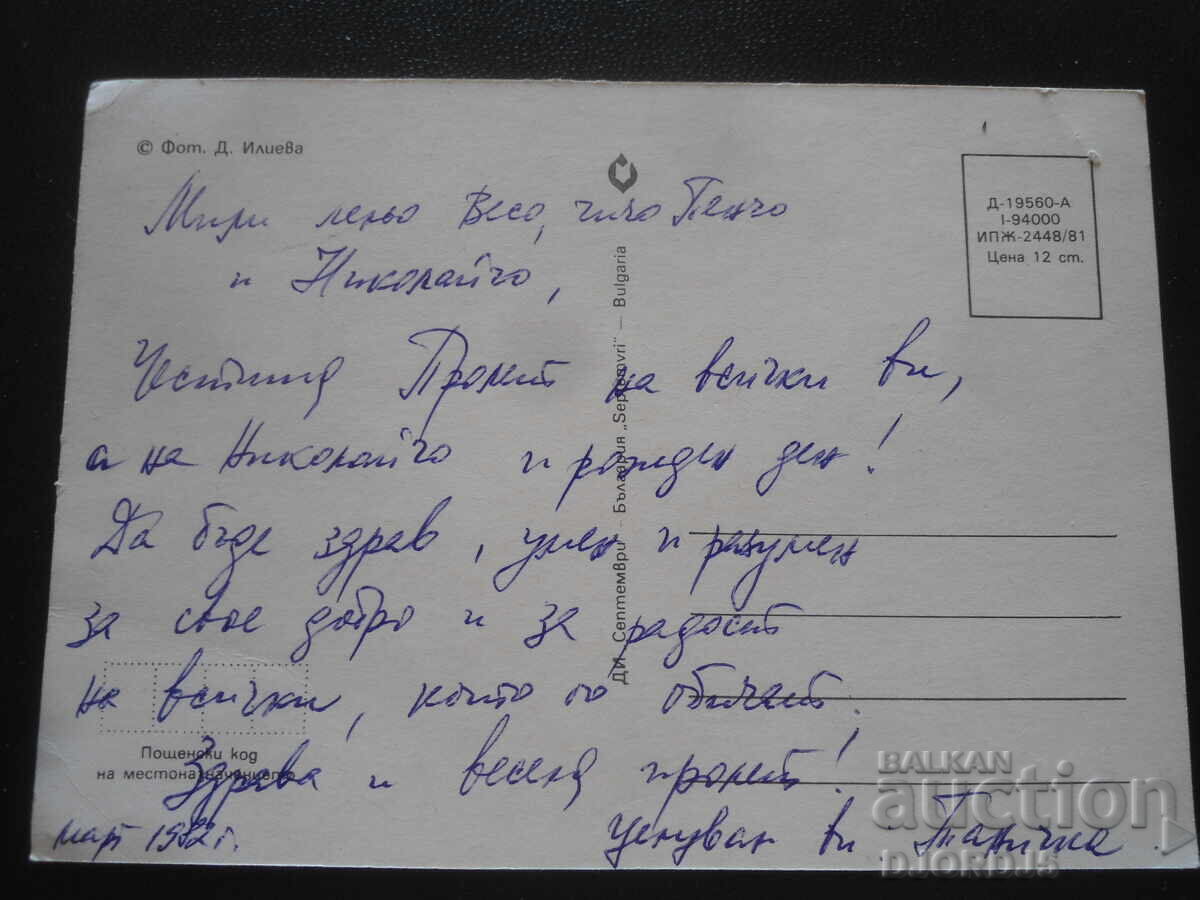 © Фот. Д. Илиева
Д-19560-А
I-94000
ИПЖ-2448/81
Цена 12 ст.
Мири леньо Весо, чичо Пенчо
и Николайчо,
Честита Пролет на всички ви,
а на Николайчо и рожден ден!
Да бъде здрав, умен и разумен
за свое добро и за радост
на всички, които го обичат.
Здрава и весела пролет!
март 1982 г.
Целувам ви: Таничка
Пощенски код
на местоназначението
ДИ Септември — България „Septemvri" — Bulgaria
BALKAN
auction
DJORDJ5